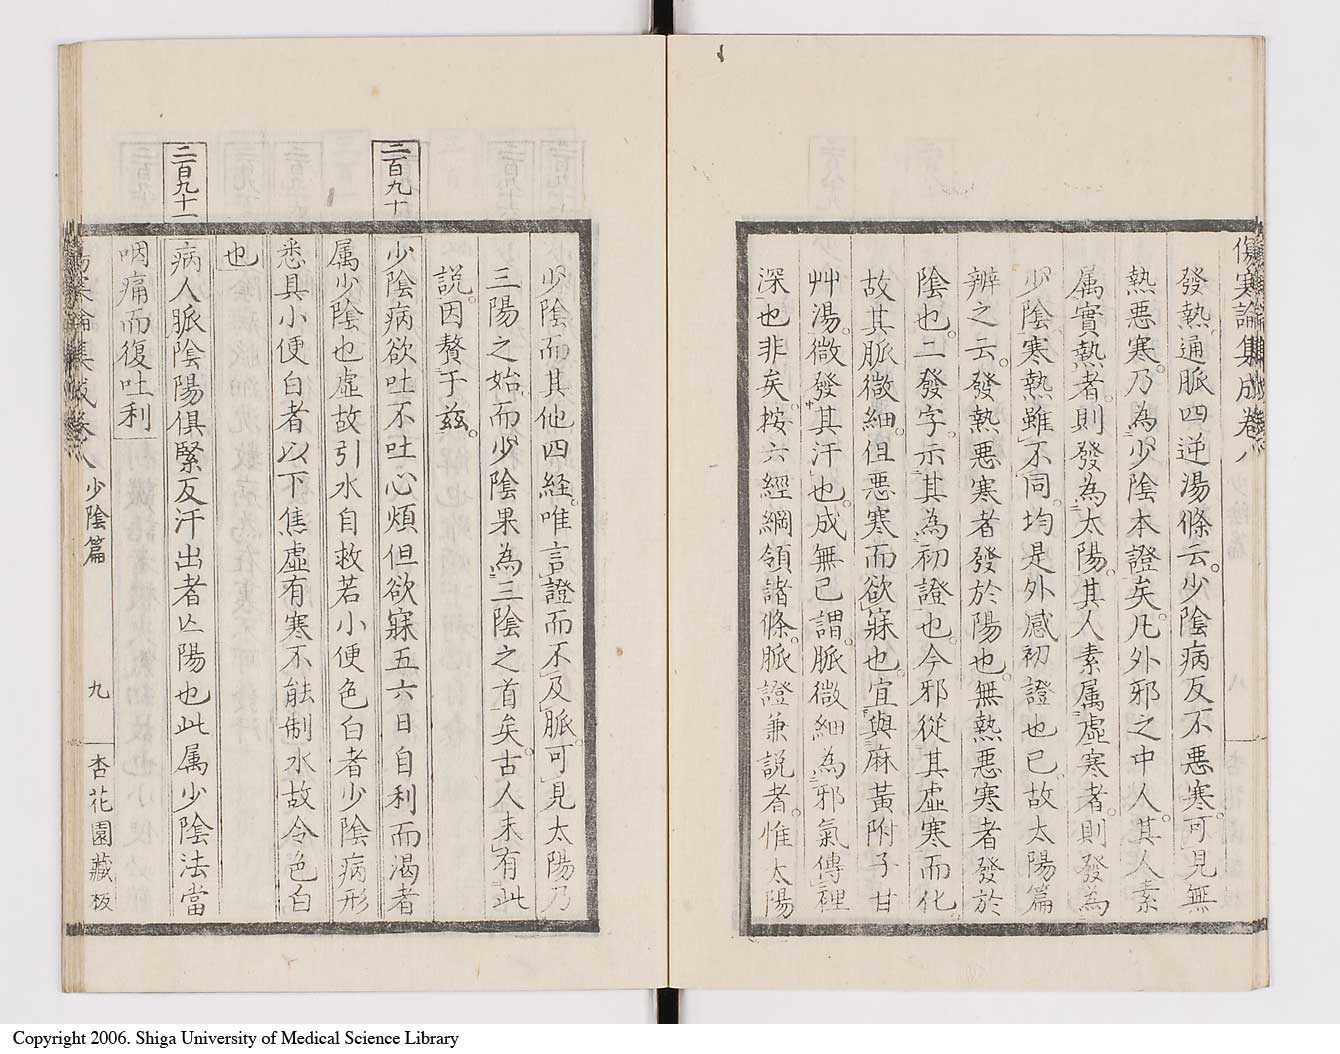 傷寒論集成卷八
發熱。通脈四逆湯條云。少陰病反不惡寒。可見無
熱惡寒。乃為少陰本證矣。凡外邪之中人。其人素
属實熱者。則發為太陽。其人素属虛寒者。則發為
少陰。寒熱雖不同。均是外感初證也已。故太陽篇
辨之云。發熱惡寒者發於陽也。無熱惡寒者發於
陰也。二發字。示其為初證也。今邪從其虛寒而化。
故其脈微細。但惡寒而欲寐也。宜與麻黃附子甘
艸湯。微發其汗也。成無已謂。脈微細為邪氣傳裡
深也非矣。按六經綱領諸條。脈證兼説者。惟太陽
少陰而其他四経。唯言證而不及脈。可見太陽乃
三陽之始。而少陰果為三陰之首矣。古人未有此
説。因贅于茲。
二百九十
少陰病欲吐不吐心煩但欲寐五六日自利而渴者
属少陰也虛故引水自救若小便色白者少陰病形
悉具小便白者以下焦虛有寒不能制水故令色白
也
二百九十一
病人脈陰陽俱緊反汗出者亡陽也此属少陰法當
咽痛而復吐利
傷寒論集成卷八 少陰篇 九 杏花園藏板
Copyright 2006. Shiga University of Medical Science Library